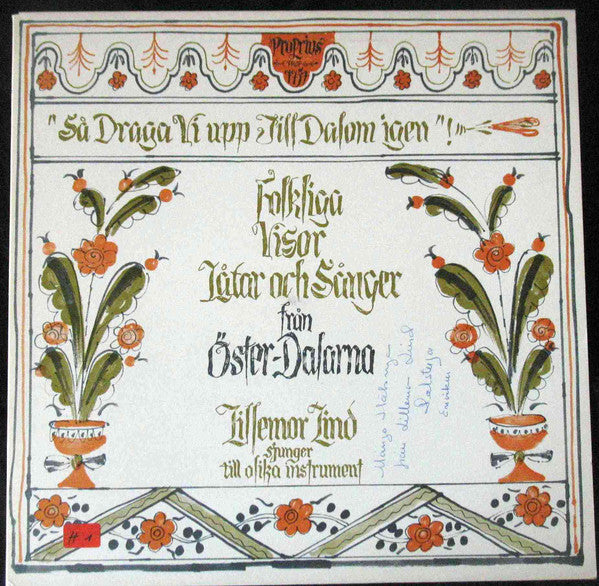 Proprius
"Så Draga Vi upp Till Dalom igen"!
Folkliga
Visor
Låtar och Sånger
från
Öster-Dalarna
Lillemor Lind
sjunger
till olika instrument
Många
från Lillemor Lind
Enviken
# 1